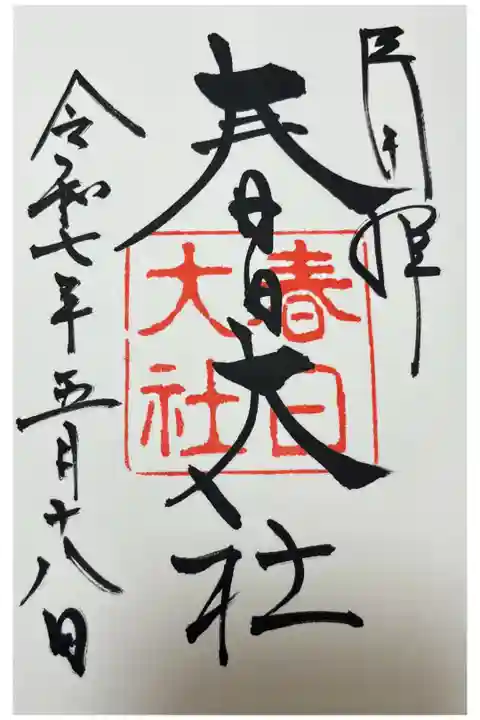 奉拝
春日大社
春日
大社
令和七年五月十八日